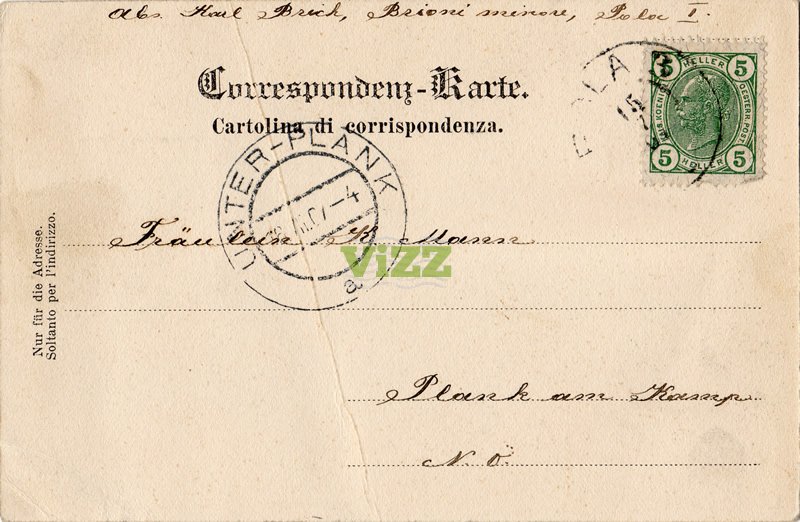 Abs. Karl Brich, Brioni minore, Pola I.
Correspondenz-Karte.
Cartolina di corrispondenza.
POLA
5 HELLER 5
OESTERR. POST
5 HELLER 5
UNTER-PLANK
07-4
a
Fräulein K. Mann
ViZZ
Nur für die Adresse.
Soltanto per l'indirizzo.
Plank am Kamp
N. Ö.